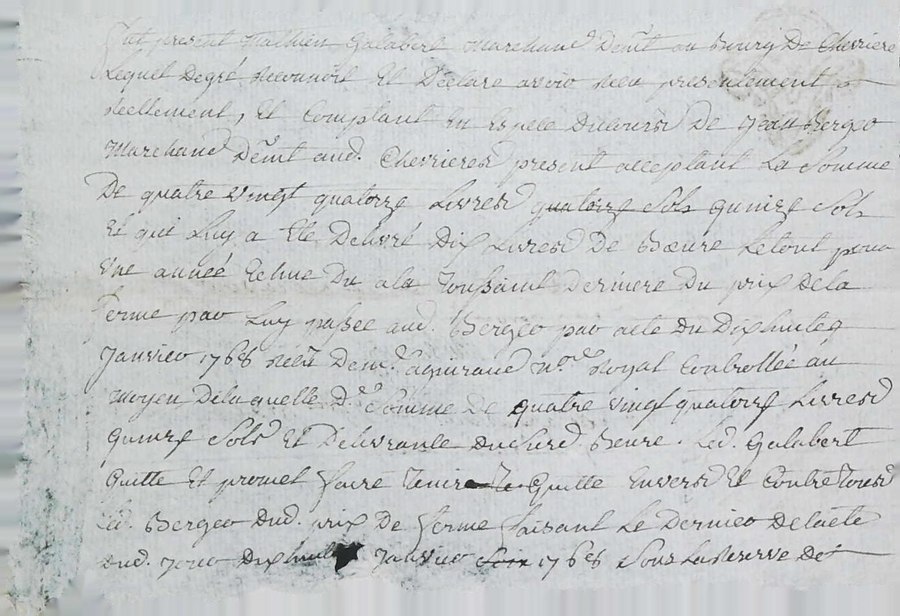 Fut present Mathieu Galabert Marchand demt au Bourg De Chevriere
Lequel Degré reconnoit Et Declare avoir reçu presentement
reellement, Et Comptant En Espece Ducours De Jean Berger
Marchand Demt aud. Chevrieres present acceptant La Somme
De quatre vingt quatorze Livres quatorze Sols quinze Sols
Et qui Luy a Eté Delivré Dix Livres De Beure Letout pour
Une année Echue Du a la Toussaint Derniere Du prix Dela
ferme par Luy passée aud. Berger par acte du Dixhuit
Janvier 1768 reçu De me. no.re Royal Controllée au
moyen Delaquelle De. Somme De quatre vingt quatorze Livres
quinze Sols Et Delivrance Dususd. Beure. Led. Galabert
Quitte Et promet faire Tenir Quitte Envers Et Contre Tous
Led. Berger Dud. prix De ferme faisant Le Dernier De Lacte
dud. Jour Dixhuit Janvier 1768 Sous La Reserve De